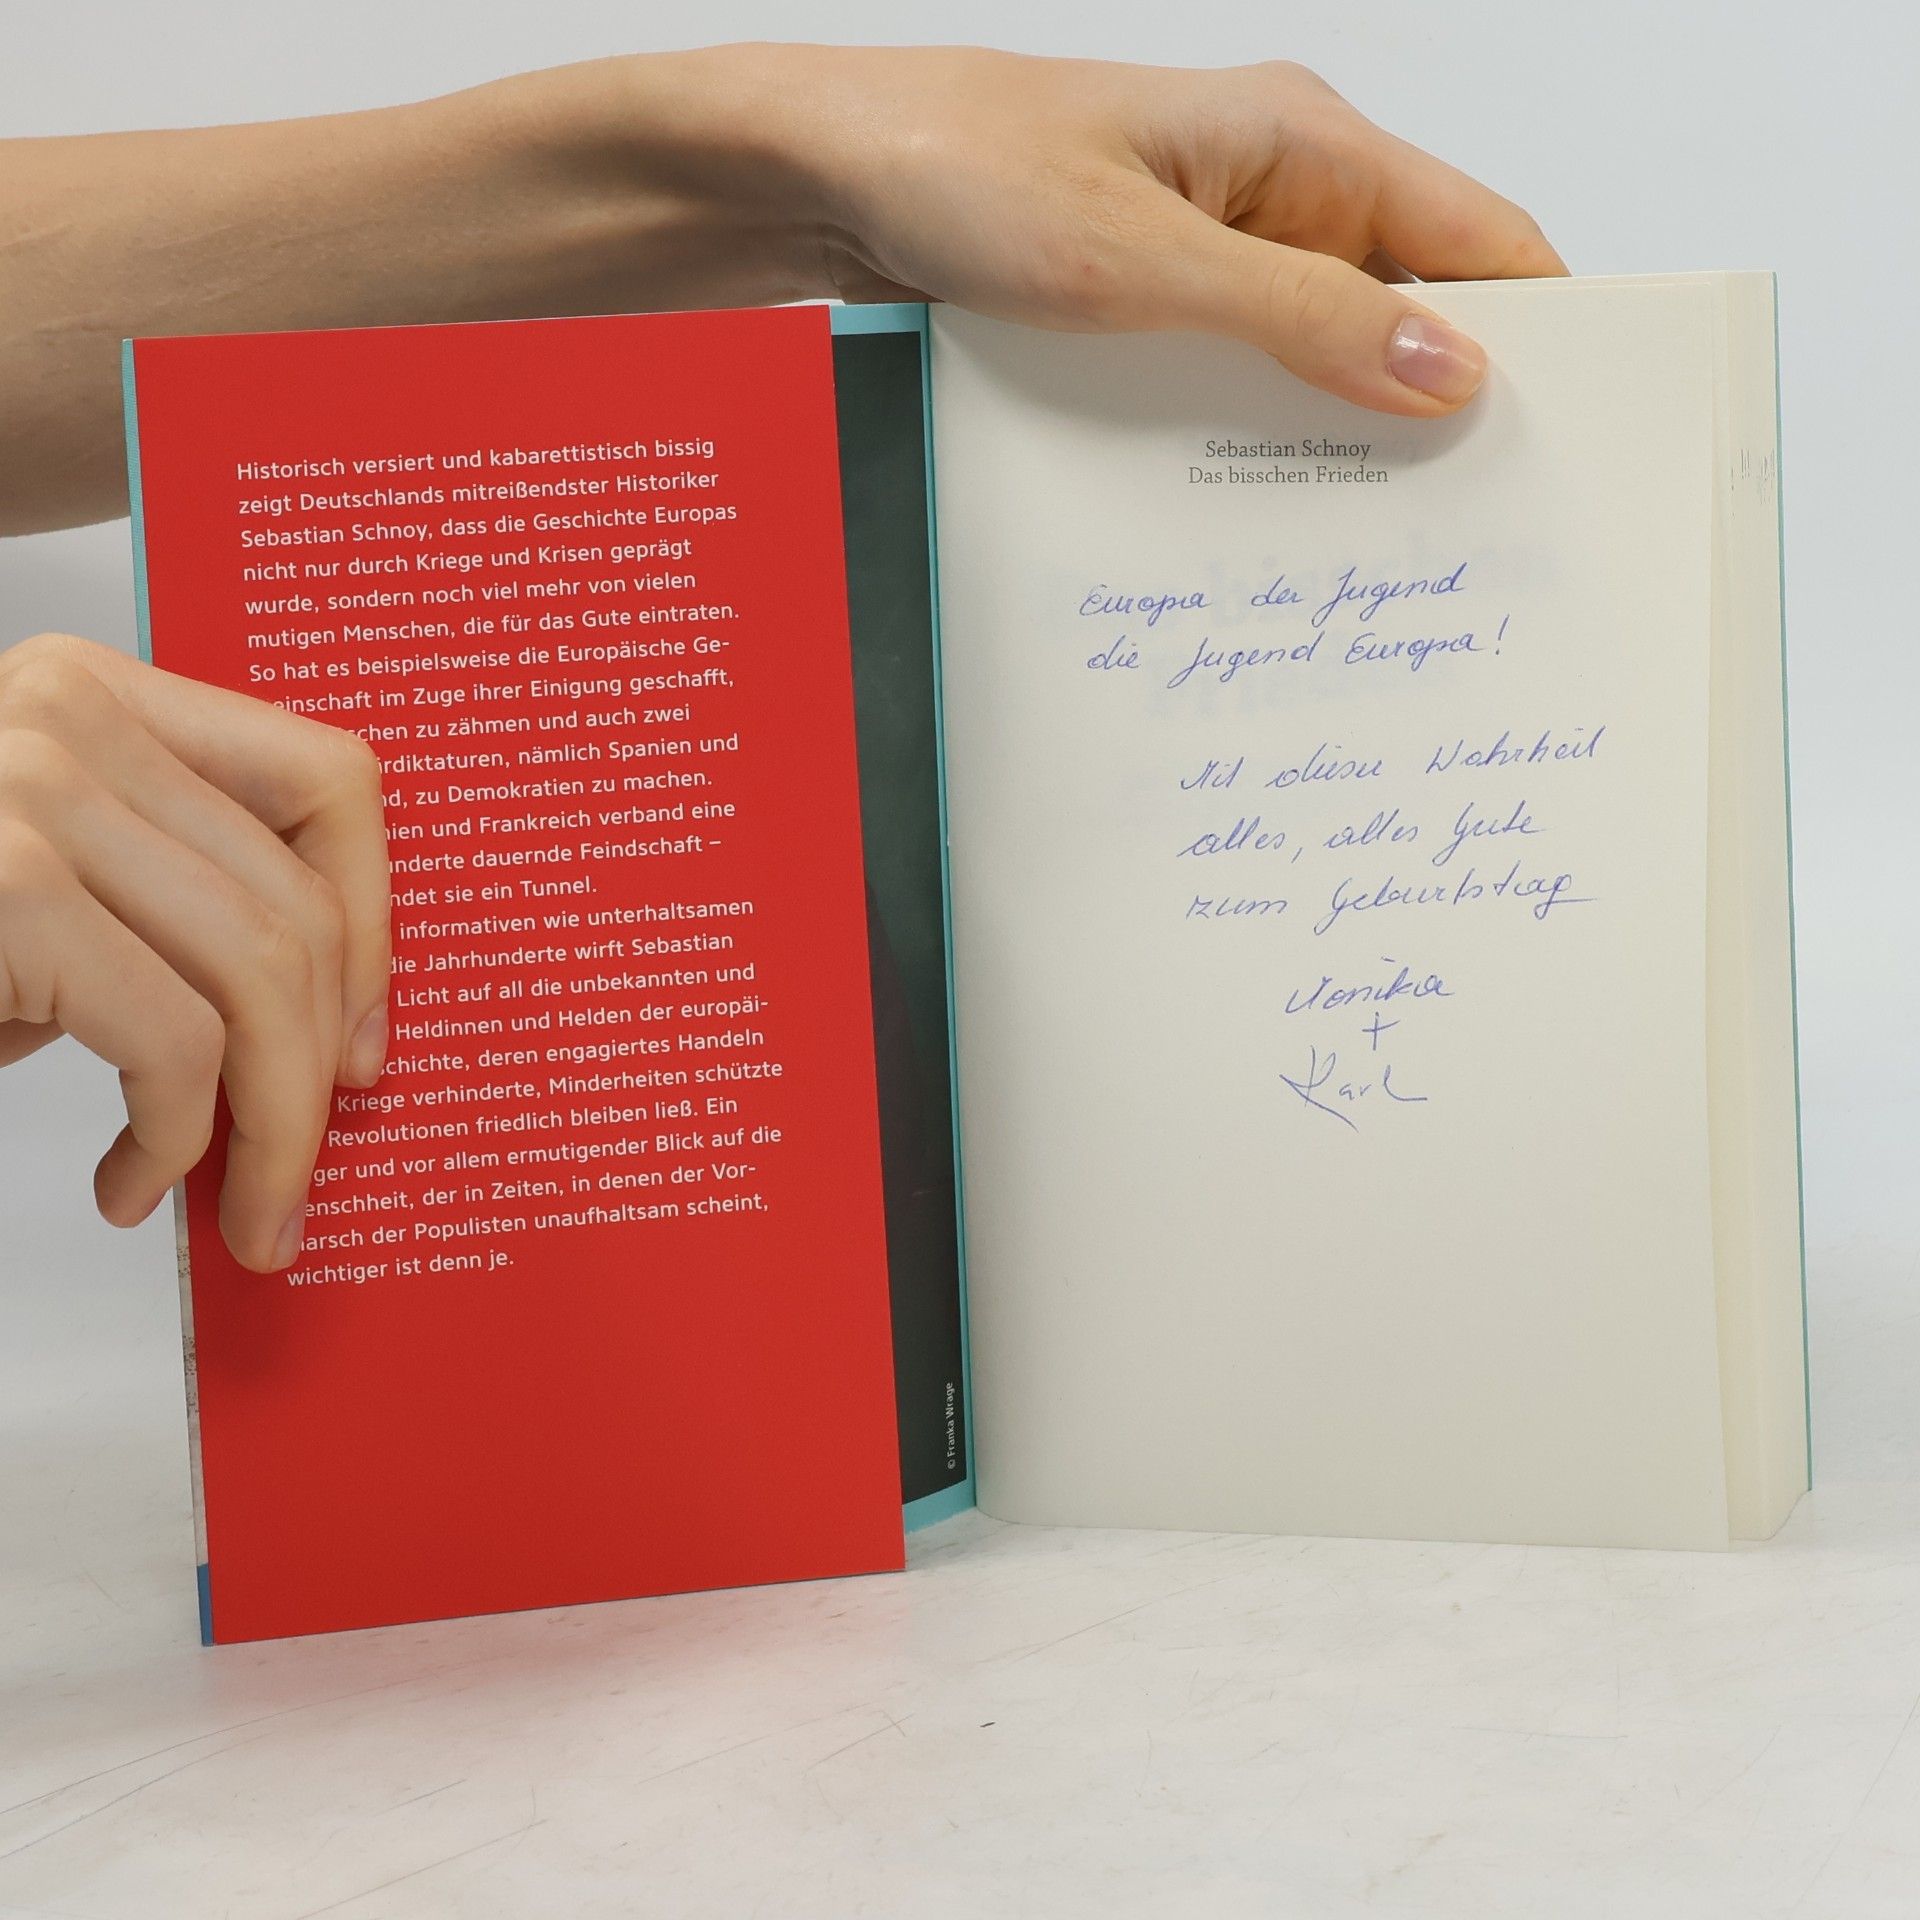 Historisch versiert und kabarettistisch bissig
zeigt Deutschlands mitreißendster Historiker
Sebastian Schnoy, dass die Geschichte Europas
nicht nur durch Kriege und Krisen geprägt
wurde, sondern noch viel mehr von vielen
mutigen Menschen, die für das Gute eintraten.
So hat es beispielsweise die Europäische Ge-
einschaft im Zuge ihrer Einigung geschafft,
schen zu zähmen und auch zwei
irdiktaturen, nämlich Spanien und
nd, zu Demokratien zu machen.
nien und Frankreich verband eine
underte dauernde Feindschaft –
ndet sie ein Tunnel.
informativen wie unterhaltsamen
die Jahrhunderte wirft Sebastian
Licht auf all die unbekannten und
Heldinnen und Helden der europäi-
chichte, deren engagiertes Handeln
Kriege verhinderte, Minderheiten schützte
Revolutionen friedlich bleiben ließ. Ein
ger und vor allem ermutigender Blick auf die
enschheit, der in Zeiten, in denen der Vor-
arsch der Populisten unaufhaltsam scheint,
wichtiger ist denn je.
© Franka Wrage
Sebastian Schnoy
Das bisschen Frieden
Europa der Jugend
die Jugend Europa!
Mit dieser Wahrheit
alles, alles Gute
zum Geburtstag
Monika
+
Karl